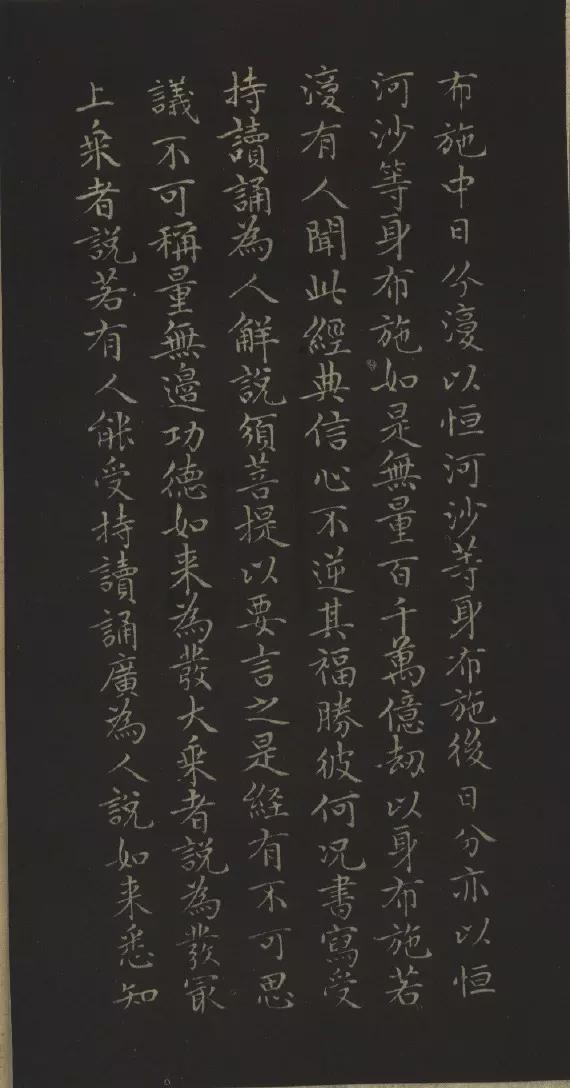 布施中日分澓以恒河沙等身布施後日分亦以恒
河沙等身布施如是無量百千萬億劫以身布施若
澓有人聞此經典信心不逆其福勝彼何况書寫受
持讀誦為人解說須菩提以要言之是經有不可思
議不可稱量無邊功德如来為發大乘者說為發冣
上乘者說若有人能受持讀誦廣為人說如来悉知